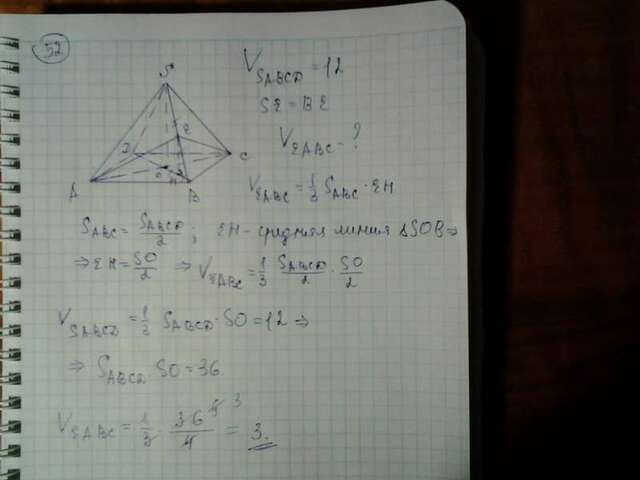 52
V SABCD = 12
SE = BE
V EABC - ?
V EABC = 1/3 S ABC · EH
S
E
D
C
A
O
H
B
S ABC = S ABCD / 2 ; EH - средняя линия ΔSOB ⇒
⇒ EH = SO/2 ⇒ V EABC = 1/3 S ABCD / 2 · SO/2
V SABCD = 1/3 S ABCD · SO = 12 ⇒
⇒ S ABCD · SO = 36
V EABC = 1/3 · 36/4 = 3.